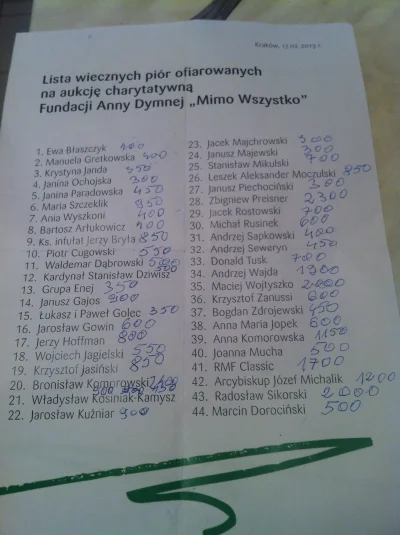 Kraków, 17.02.2013 r.
Lista wiecznych piór ofiarowanych
na aukcję charytatywną
Fundacji Anny Dymnej „Mimo Wszystko"
1. Ewa Błaszczyk
2. Manuela Gretkowska 400
3. Krystyna Janda 350
4. Janina Ochojska 300
5. Janina Paradowska 450
6. Maria Szczeklik 850
7. Ania Wyszkoni 400
8. Bartosz Arłukowicz
9. Ks. infułat Jerzy Bryła 850
10. Piotr Cugowski 550
11. Waldemar Dąbrowski
12. Kardynał Stanisław Dziwisz 500
13. Grupa Enej 350
14. Janusz Gajos 900
15. Łukasz i Paweł Golec 350
16. Jarosław Gowin 600
17. Jerzy Hoffman 800
18. Wojciech Jagielski 550
19. Krzysztof Jasiński 850
20. Bronisław Komorowski
21. Władysław Kosiniak-Kamysz
22. Jarosław Kuźniar 900
23. Jacek Majchrowski 300
24. Janusz Majewski 300
25. Stanisław Mikulski 700
26. Leszek Aleksander Moczulski 850
27. Janusz Piechociński 300
28. Zbigniew Preisner 2300
29. Jacek Rostowski 700
30. Michał Rusinek 600
31. Andrzej Sapkowski 400
32. Andrzej Seweryn 450
33. Donald Tusk 700
34. Andrzej Wajda
35. Maciej Wojtyszko
36. Krzysztof Zanussi 600
37. Bogdan Zdrojewski 450
38. Anna Maria Jopek 600
39. Anna Komorowska 1150
40. Joanna Mucha 500
41. RMF Classic 1700
42. Arcybiskup Józef Michalik 1200
43. Radosław Sikorski 2000
44. Marcin Dorociński 500